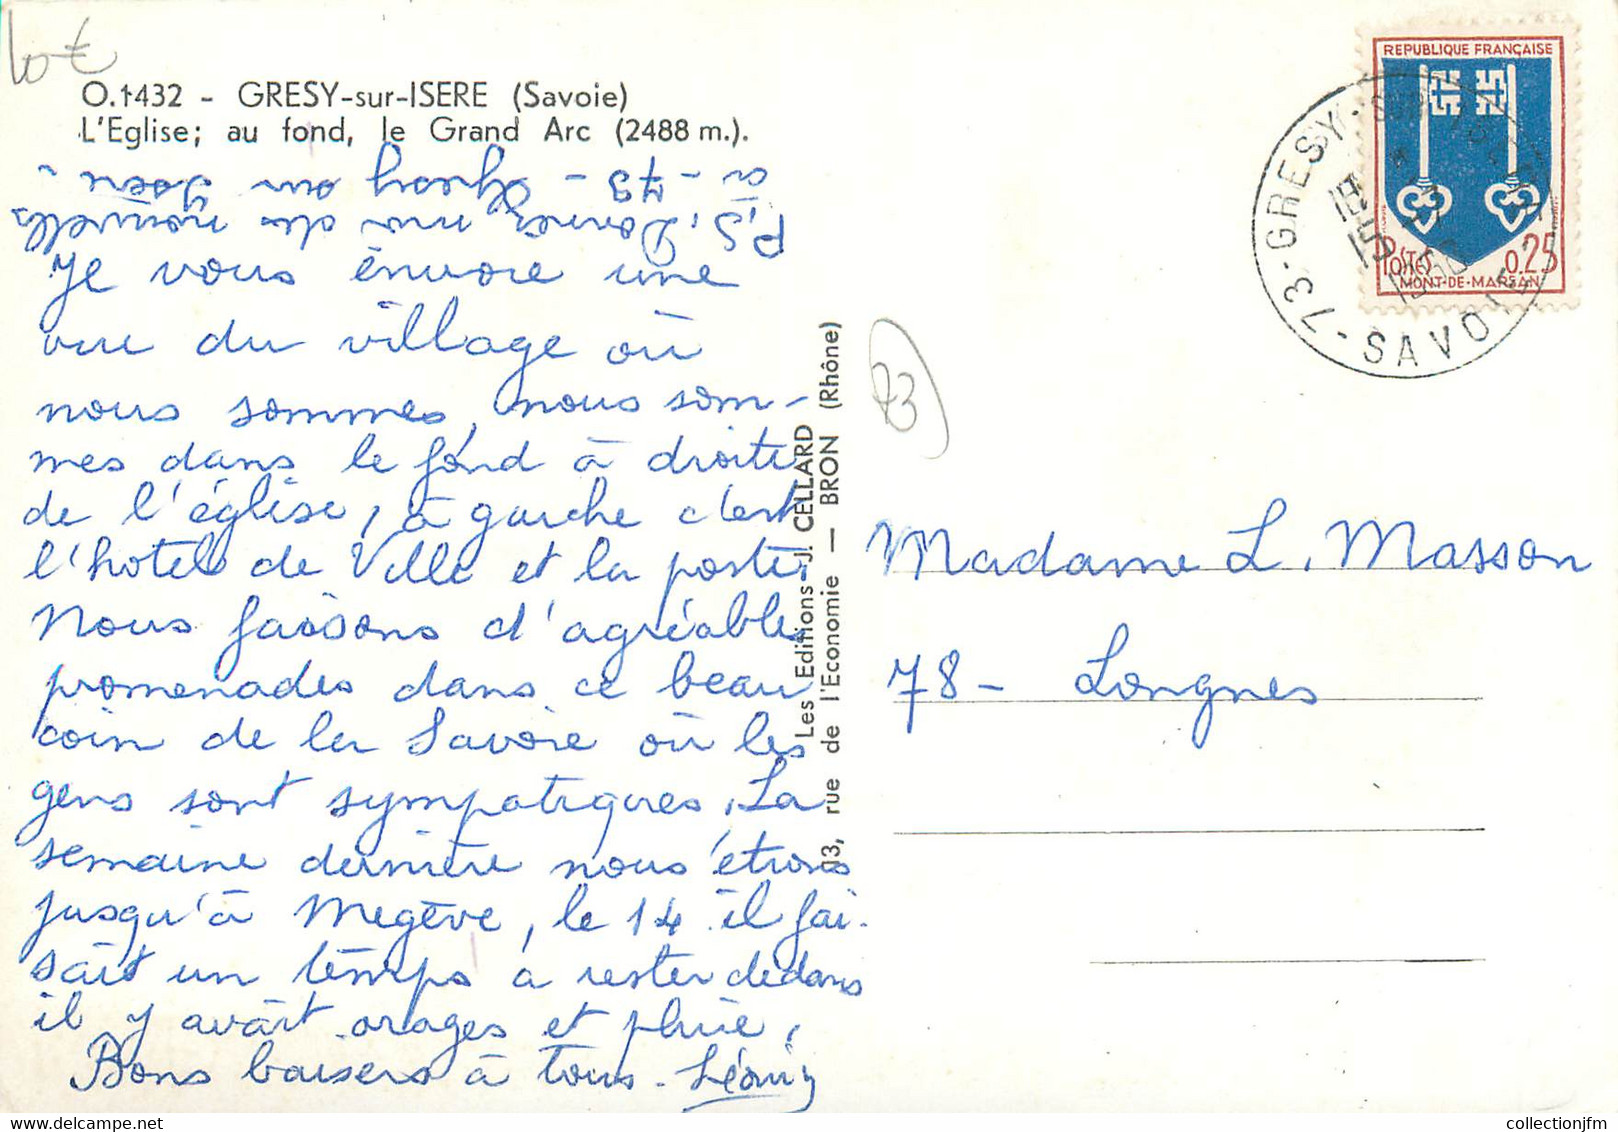 10 €
O.1432 - GRESY-sur-ISERE (Savoie)
L'Eglise; au fond, le Grand Arc (2488 m.).
P.S. Donnez moi des nouvelles
à - 73 - Grésy sur Isère.
Je vous envoie une
vue du village où
nous sommes, nous som-
mes dans le fond à droite
de l'église, à gauche c'est
l'hotel de Ville et la poste.
Nous faisons d'agréables
promenades dans ce beau
coin de la Savoie où les
gens sont sympatiques. La
semaine dernière nous étions
jusqu'à Megève, le 14 il fai-
sait un temps à rester dedans
il y avait orages et pluie.
Bons baisers à tous.
Les Editions J. CELLARD
13, rue de l'Economie — BRON (Rhône)
73
REPUBLIQUE FRANÇAISE
POSTES 0.25
MONT-DE-MARSAN
73 - GRESY-SUR-ISERE
SAVOIE
Madame L. Masson
78 - Longnes
www.collectionjfm.com